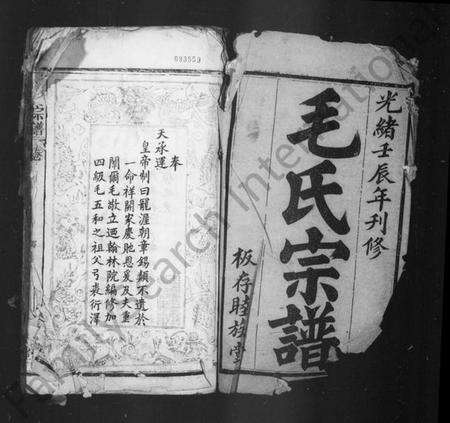 光緒壬辰年刊修
毛氏宗譜
板存睦族堂
093559
奉
天承運
皇帝制曰寵渥朝章錫類不遺於
一命祥開家慶貤恩爰及夫重
闈爾毛敬立迺翰林院編修加
四級毛五和之祖父弓裘衍澤
宗譜
卷
FamilySearch International